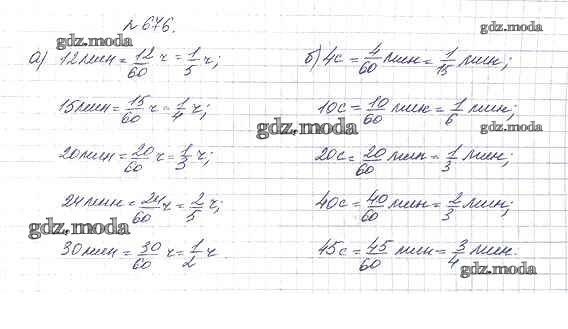 № 676.
а) 12 мин = 12/60 ч = 1/5 ч;
15 мин = 15/60 ч = 1/4 ч;
20 мин = 20/60 ч = 1/3 ч;
24 мин = 24/60 ч = 2/5 ч;
30 мин = 30/60 ч = 1/2 ч
б) 4с = 4/60 мин = 1/15 мин;
10с = 10/60 мин = 1/6 мин;
20с = 20/60 мин = 1/3 мин;
40с = 40/60 мин = 2/3 мин;
45с = 45/60 мин = 3/4 мин.
gdz.moda
gdz.moda
gdz.moda
gdz.moda
gdz.moda
gdz.moda